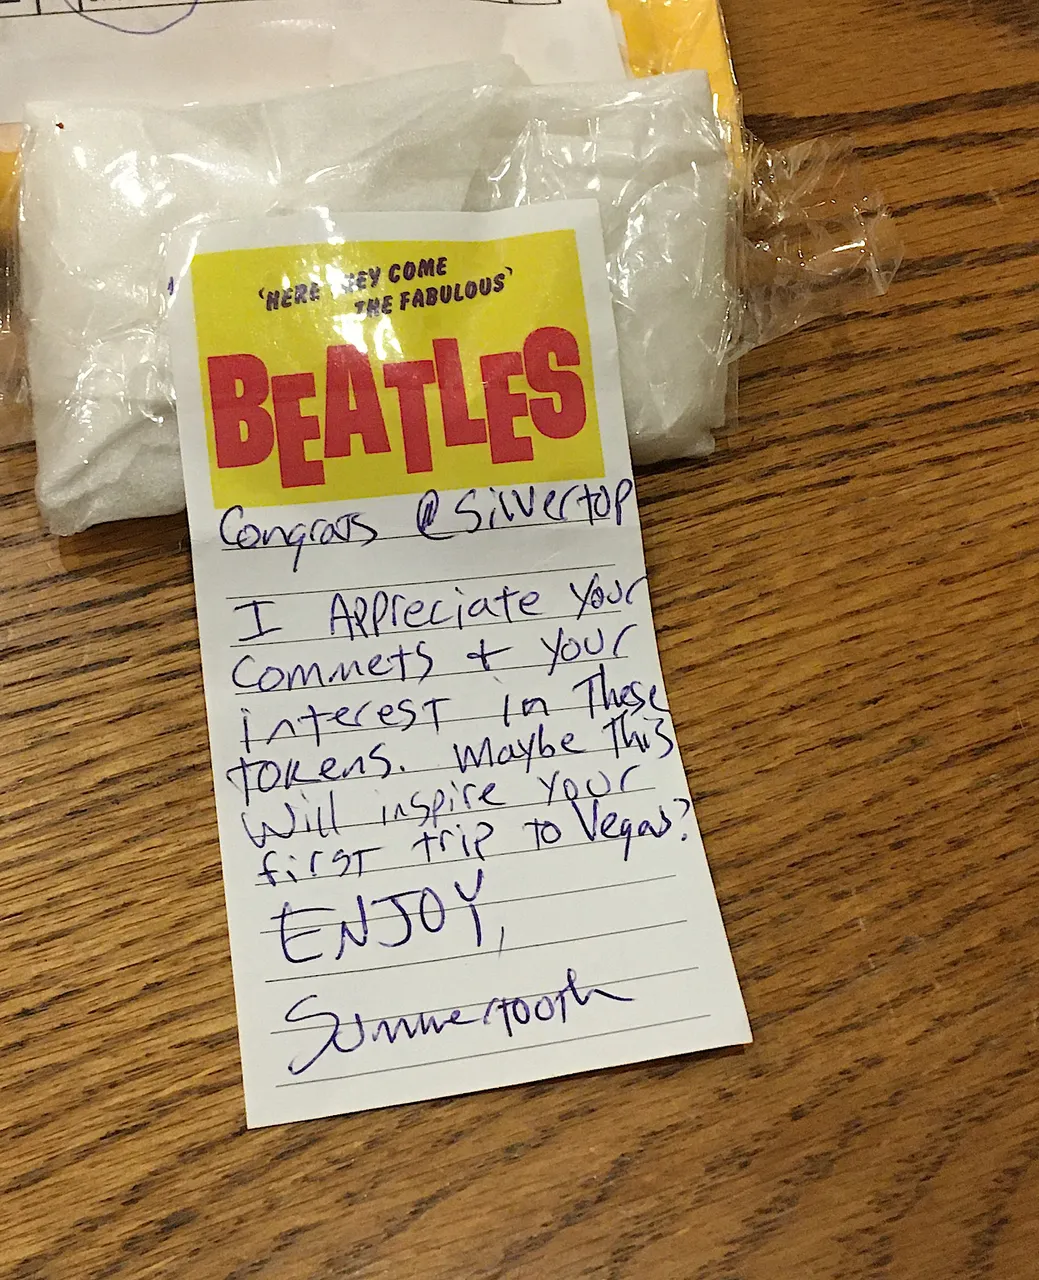 'HERE THEY COME
THE FABULOUS'
BEATLES
Congrats @Silvertop
I Appreciate your
commets + your
interest in These
tokens. Maybe This
will inspire your
first trip to Vegas?
ENJOY,
Summertooth